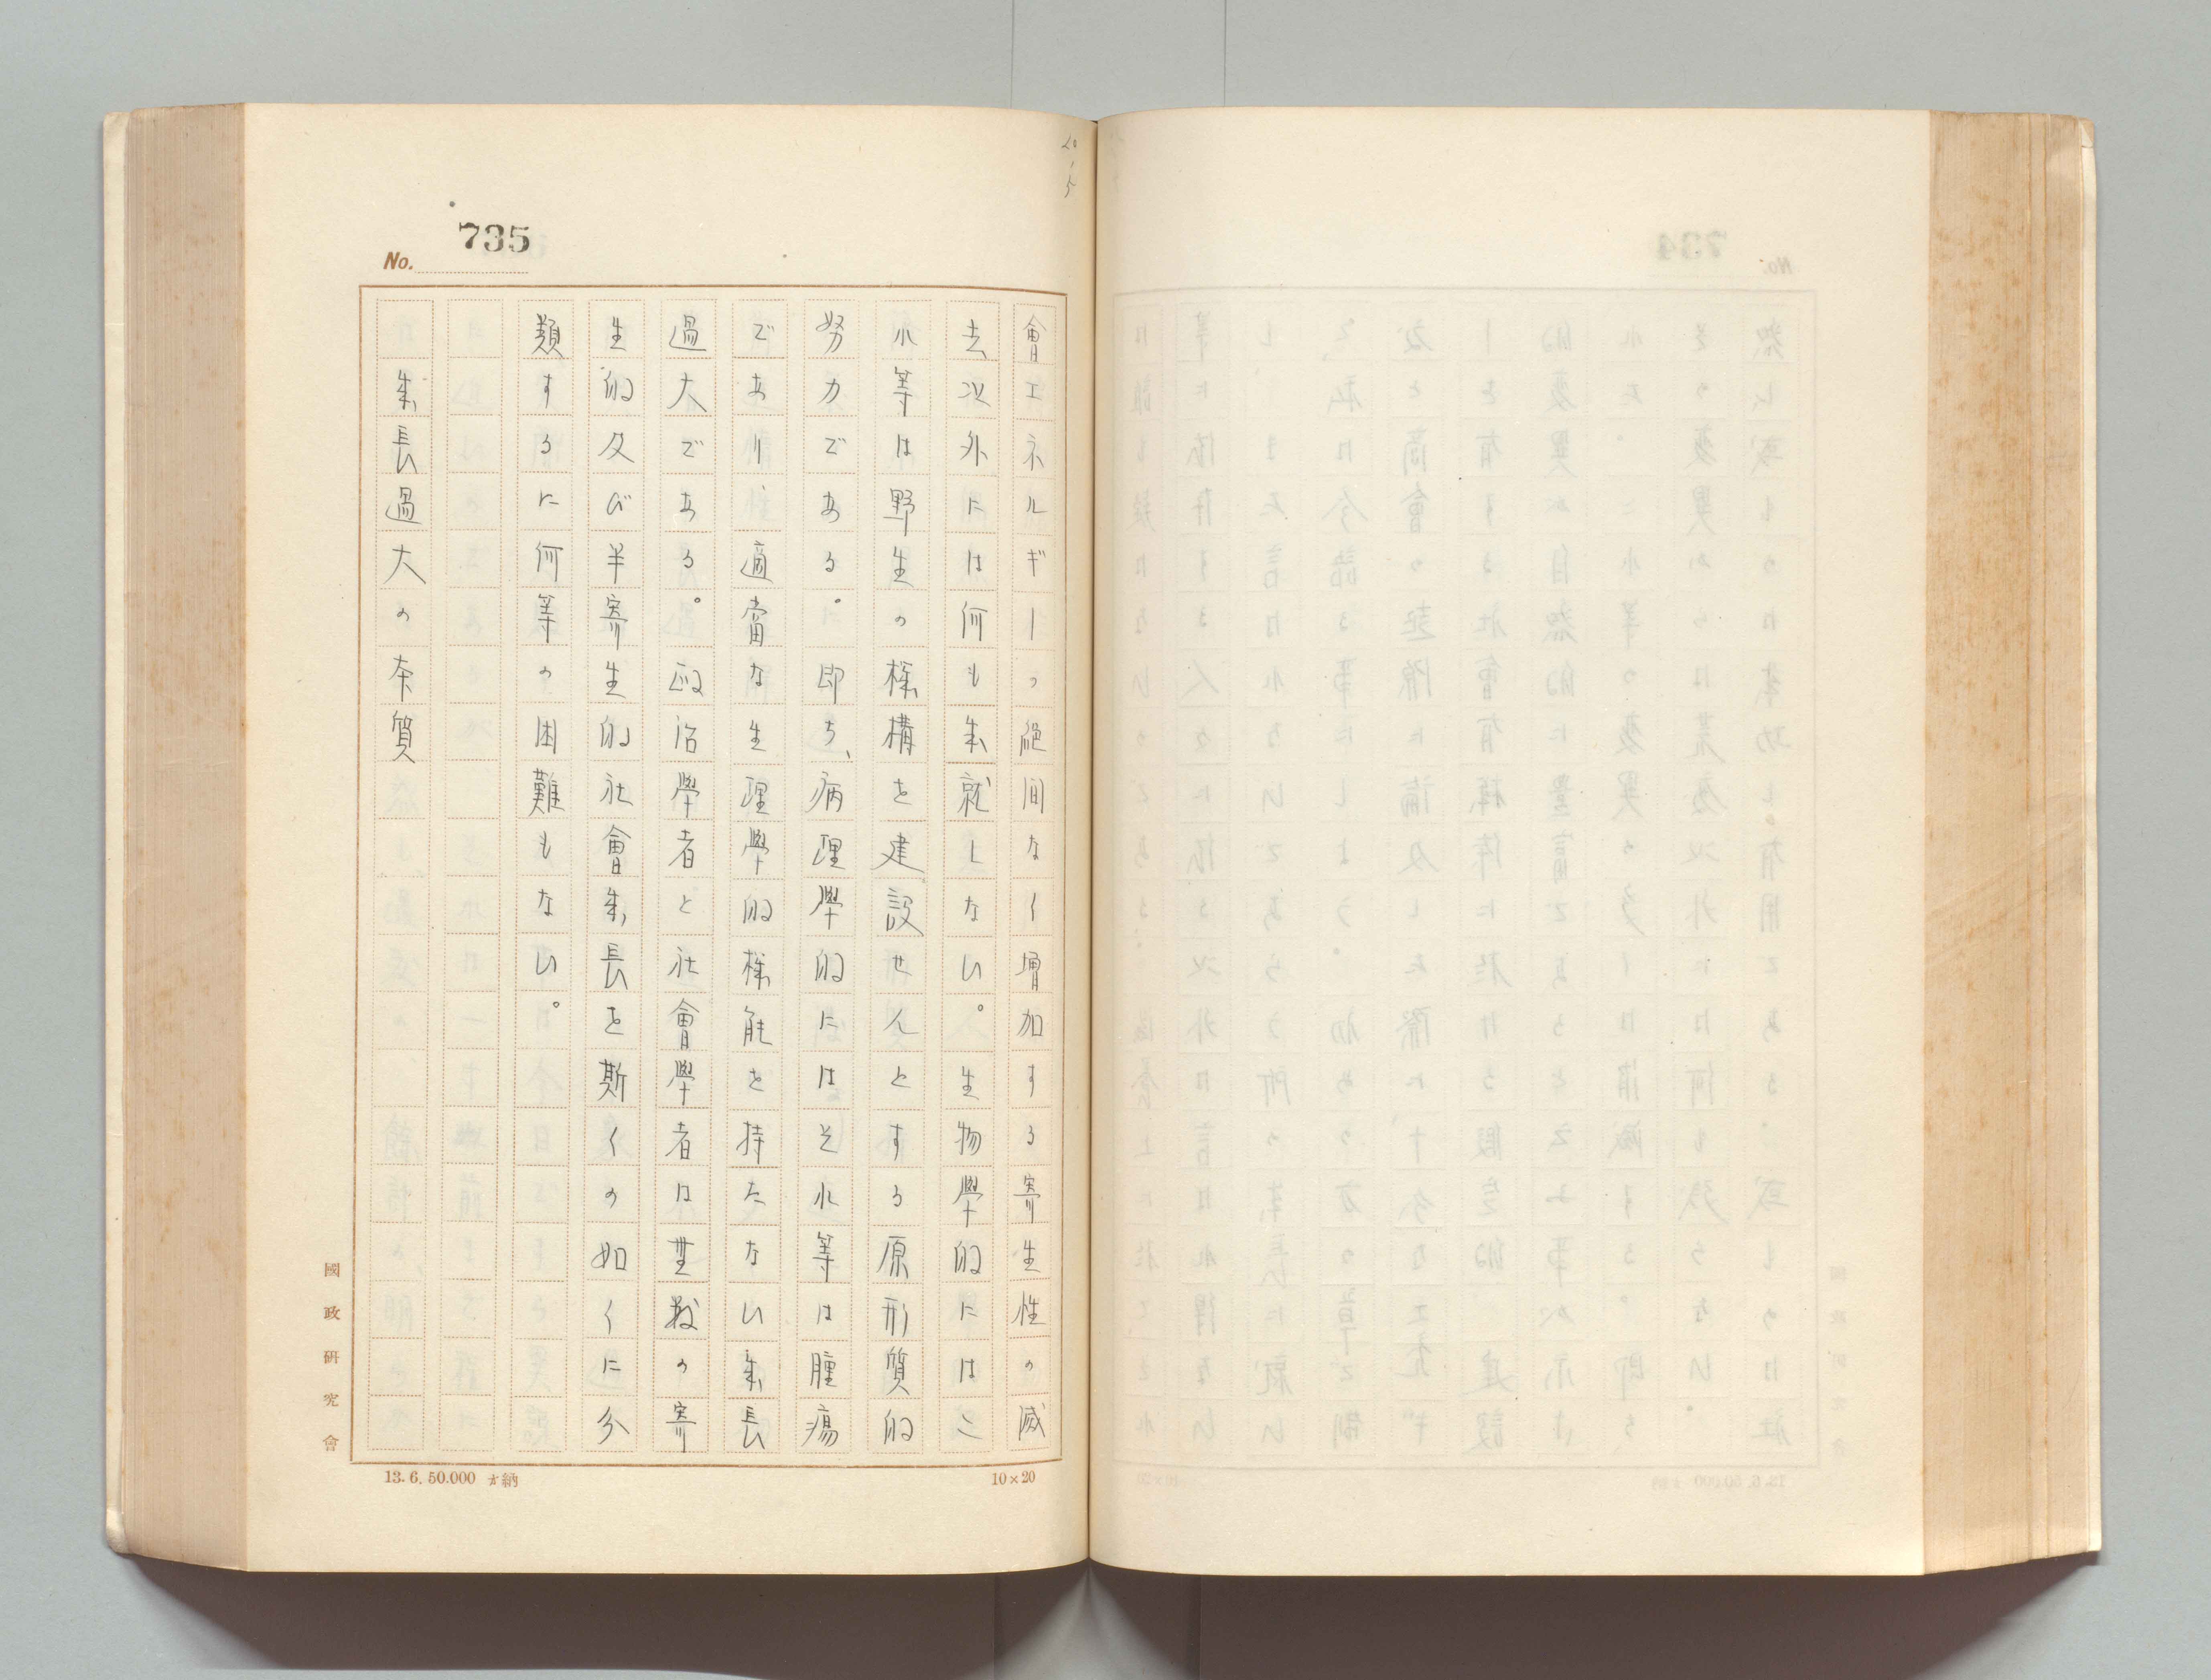 20.5
735
No.
會エネルギーの絶間なく増加する寄生性の滅
去以外には何も成就しない。生物學的にはこ
れ等は野生の機構を建設せんとする原形質的
努力である。即ち、病理學的にはそれ等は腫瘍
であり、適當な生理學的機能を持たない成長
過大である。政治學者と社會學者は無数の寄
生的及び半寄生的社會成長を斯くの如くに分
類するに何等の困難もない。
成長過大の本質
國政研究會
13.6.50.000 納
10×20